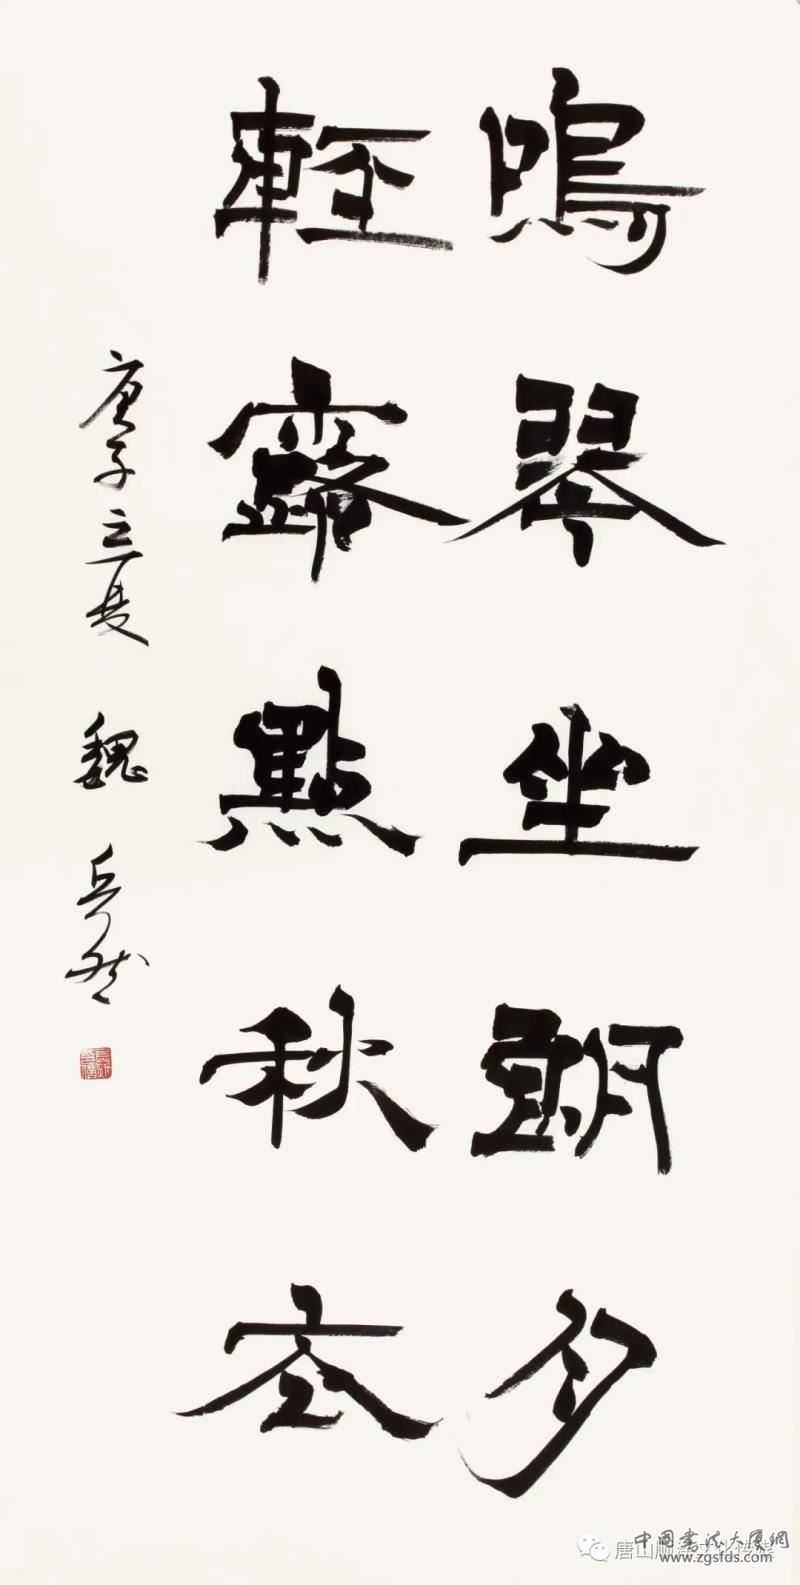 鳴琴坐朗夕
輕露點秋衣
庚子立夏 魏
中國書法大厦網
唐山
www.zgsfds.com